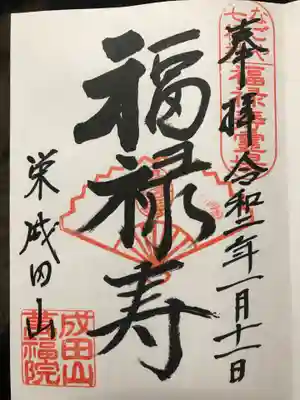 奉拝 令和二年一月十一日
福禄寿霊場
福禄寿
栄成田山
成田山
萬福院